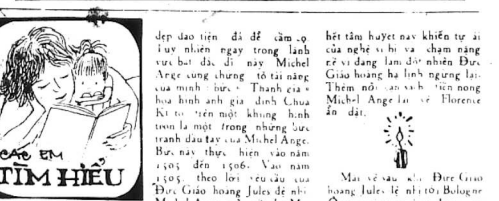 CÁC EM
TÌM HIỂU
đẹp dao tiện đá để cầm cọ.
Tuy nhiên ngay trong lãnh
vực bất đắc dĩ này Michel
Ange cũng chứng tỏ tài năng
của mình bức Thánh gia
họa hình ảnh gia đình Chúa
Ki tô trên một khung hình
tròn là một trong những bức
tranh đầu tay của Michel Ange.
Bức này thực hiện vào năm
1505 đến 1506. Vào năm
1505, theo lời yêu cầu của
Đức Giáo hoàng Jules đệ nhị
hết tâm huyết nay khiến tự ái
của nghệ sĩ bị va chạm nặng
nề vì đang làm đột nhiên Đức
Giáo hoàng hạ lịnh ngưng lại.
Thêm nỗi nong
Michel Ange lại về Florence
ẩn dật.
Mãi về sau khi Đức Giáo
hoàng Jules đệ nhị tới Bologne